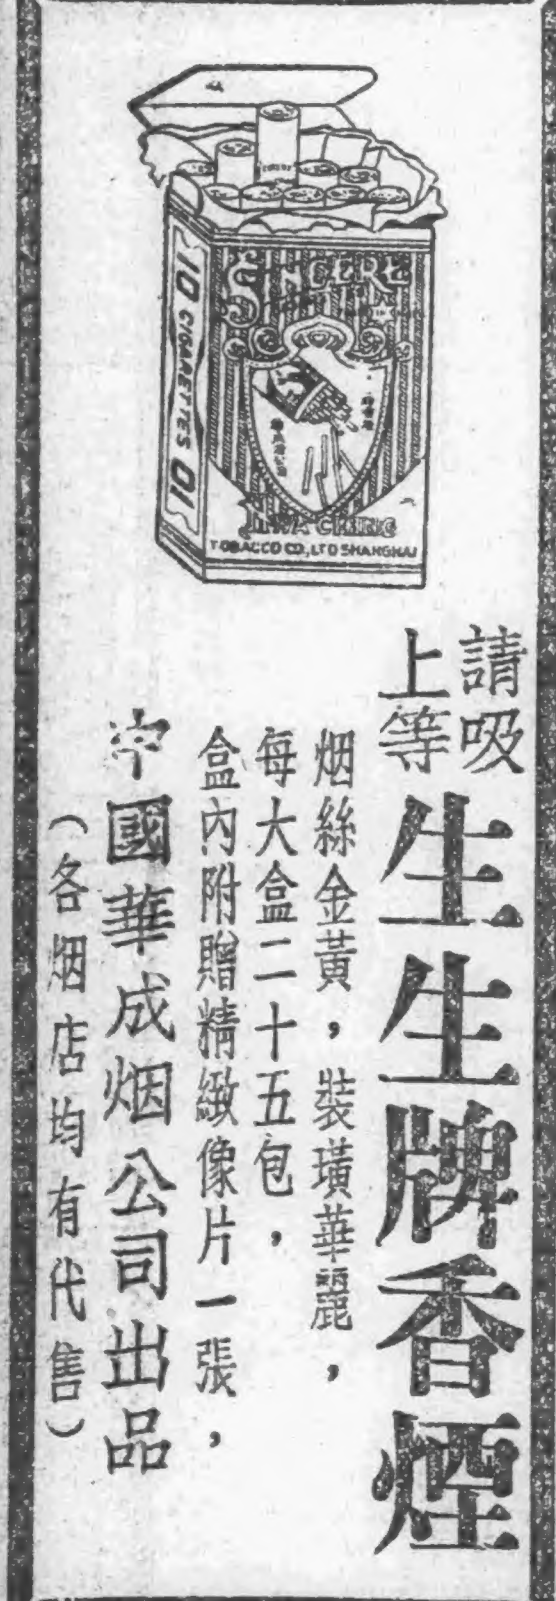 SINCERE
10 CIGARETTES 10
HWA CHENG
TOBACCO CO., LTD SHANGHAI
請吸
上等
生生牌香煙
烟絲金黃，裝璜華麗，
每大盒二十五包，
盒內附贈精緻像片一張，
中國華成烟公司出品
（各烟店均有代售）